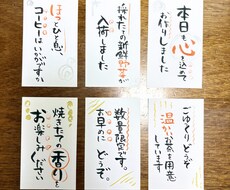 ほっとひと息、
コーヒーはいかがですか
採れたての新鮮野菜が
入荷しました
本日も心込めて
お作りしました
焼きたての香りを
お楽しみください
数量限定です。
お早めにどうぞ。
ごゆっくりどうぞ
温かいお茶を用意
しています